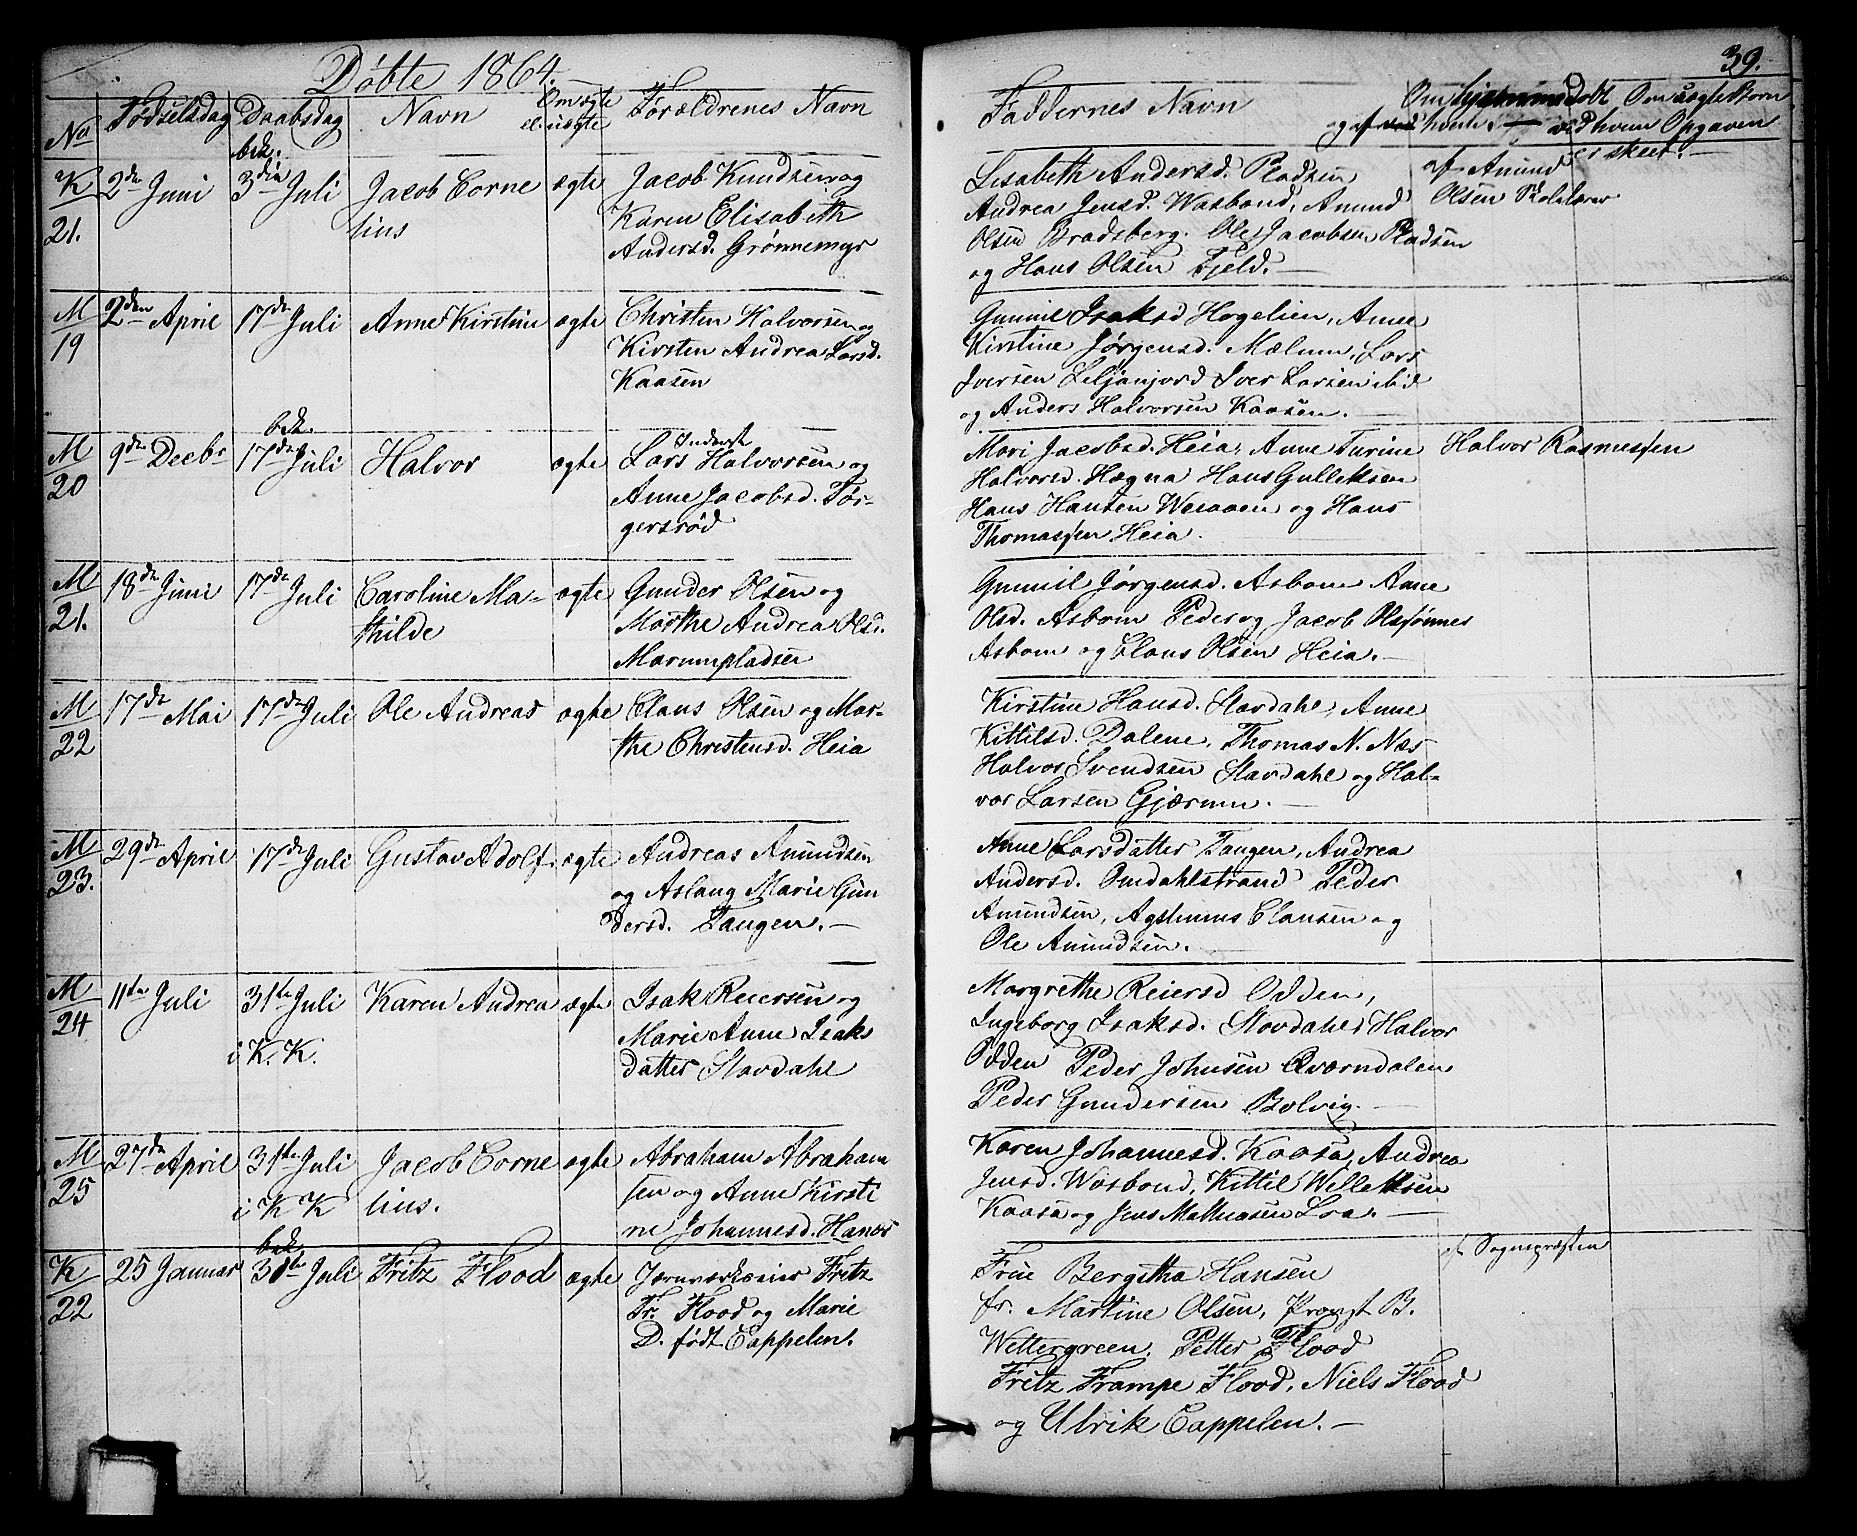 Døbte 1864.
39.
No
Fødselsdag
Daabsdag
Navn
Om ægte
el. uægte
Forældrenes Navn
Faddernes Navn
Om hjemmedøbt
og af hvem
Om uægte Børn
ved hvem Opgaven
er skeet.
K
21.
2den Juni
bek.
3die Juli
Jacob Corne
lius
ægte
Jacob Knudsen og
Karen Elisabeth
Andersd. Grønnemyr
Lisabeth Andersd. Pladsen
Andrea Jensd. Wasbond, Amund
Olsen Bradsberg. Ole Jacobsen Pladsen
og Hans Olsen Fjeld.
af Amund
Olsen Skolelærer
M
19
2den April
17de Juli
Anne Kirstine
ægte
Christen Halvorsen og
Kirsten Andrea Larsd.
Kaasen
Gunnil Isaksd Hogelien, Anne
Kirstine Jørgensd. Mælum, Lars
Iversen Leljanjord Iver Larsen ibid
og Anders Halvorsen Kaasen.
M
20
9de Decbr
bek.
17de Juli
Halvor
ægte
Inderst
Lars Halvorsen og
Anne Jacobsd. Tor-
gersrød
Mari Jacobsd. Heia, Anne Turine
Halvorsd. Hægna Hans Gulleksen
Hans Hansen Weraaen og Hans
Thomassen Heia.
Halvor Rasmussen
M
21.
18de Juni
17de Juli
Caroline Ma-
thilde
ægte
Gunder Olsen og
Marthe Andrea Olsd.
Marumpladsen
Gunnil Jørgensd. Asbom Anne
Olsd. Asbom Peder og Jacob Olssønnes
Asbom og Claus Olsen Heia.
M
22
17de Mai
17de Juli
Ole Andreas
ægte
Claus Olsen og Mar-
the Christensd. Heia
Kirstine Hansd. Stavdahl, Anne
Kittilsd. Dalene, Thomas N. Næs
Halvor Svendsen Stavdahl og Hal-
vor Larsen Gjærum.
M
23.
29de April
17de Juli
Gustav Adolf
ægte
Andreas Amundsen
og Aslaug Marie Gun
dersd. Tangen.
Anne Larsdatter Tangen, Andrea
Andersd. Omdahlstrand Peder
Amundsen, Agstinus Clausen og
Ole Amundsen.
M
24
11te Juli
31te Juli
i K. K.
Karen Andrea
ægte
Isak Reiersen og
Marie Anne Isaks
datter Stavdahl
Margrethe Reiersd Odden,
Ingeborg Isaksd. Stovdahl, Halvor
Odden Peder Johnsen Qværndalen
Peder Gundersen Bolvig.
M
25
27de April
31te Juli
i K K
Jacob Corne
lius.
ægte
Abraham Abraham
sen og Anne Kirsti
ne Johannesd. Hanes
Karen Johannesd. Kaasa, Andrea
Jensd. Wasbond, Kittil Willeksen
Kaasa og Jens Mathiasen Loa.
K
22
25 Januar
bek.
31te Juli
Fritz Flood
ægte
Jernværkseier Fritz
Fr. Flood og Marie
D. født Cappelen.
Frue Bergitha Hansen
fr. Martine Olsen, Provst B.
Wettergreen, Petter Flood
Fritz Frampe Flood, Niels Flood
og Ulrik Cappelen.
af Sognepræsten